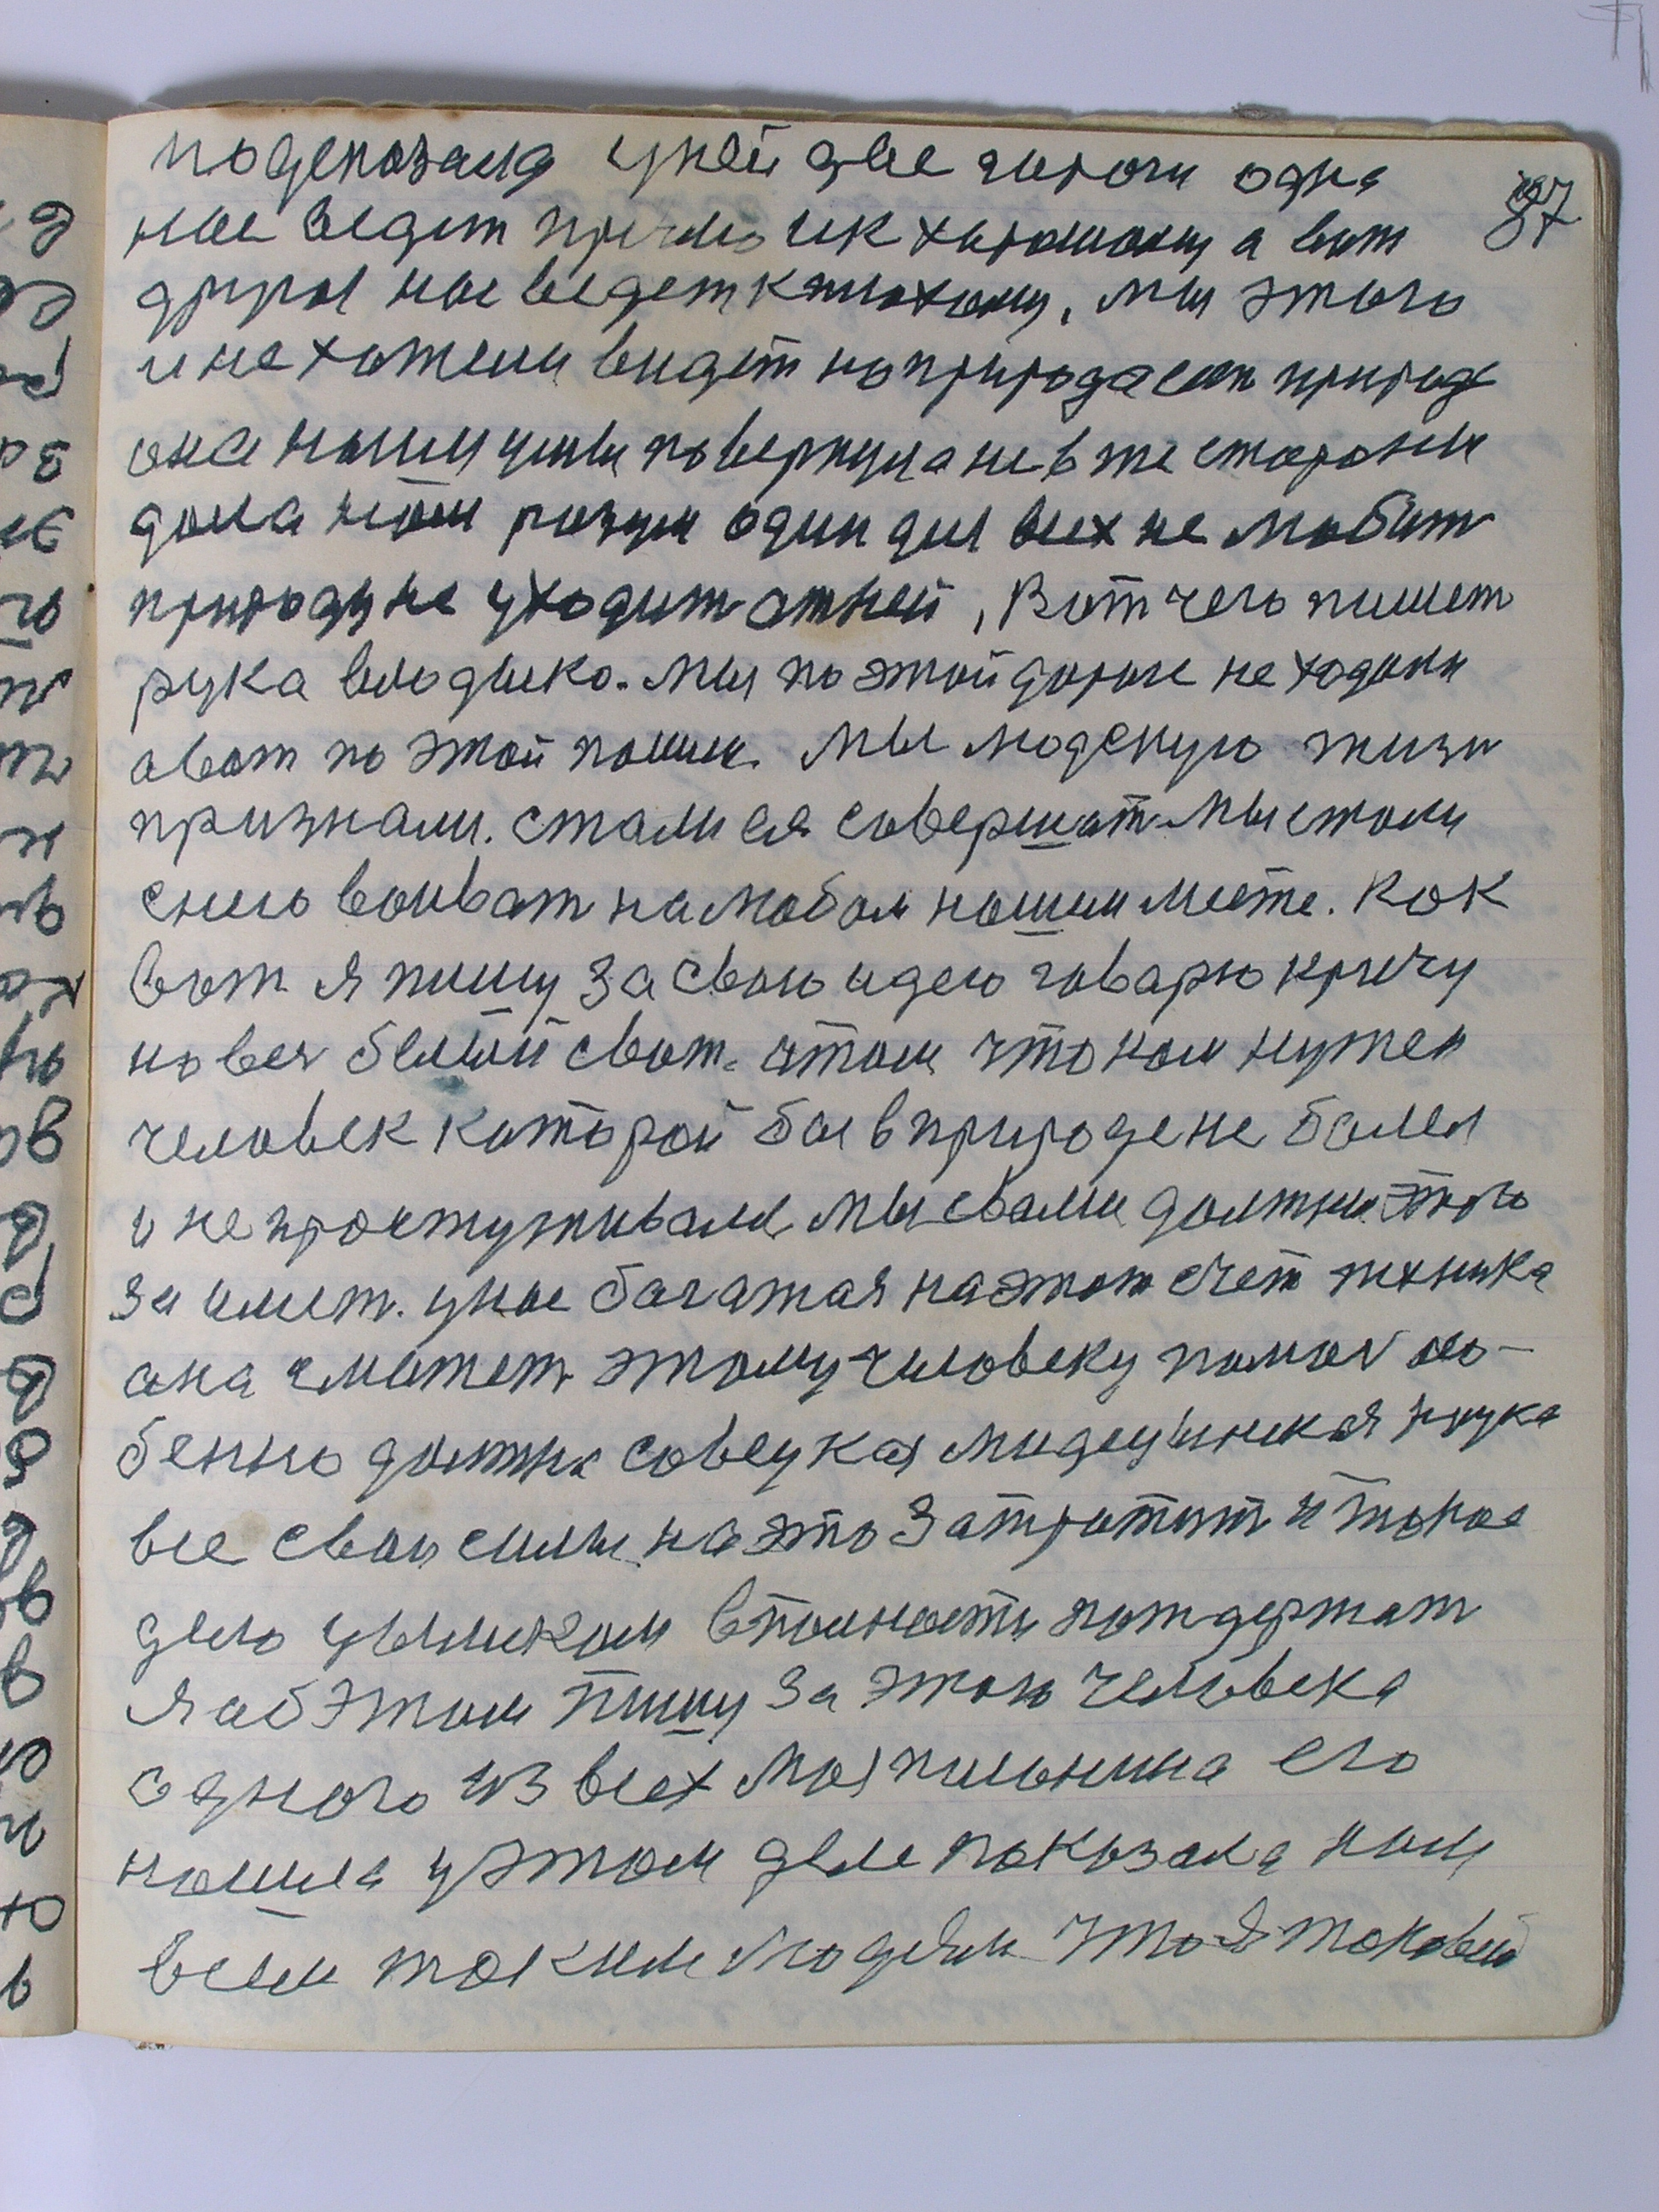 у ней две дароги одна
87
нас ведет прямо ик харошому а вот
другая нас ведет к плохому, мы этого
и не хотели видет но природа есть природа
она нашы умы повернула не в те стороны
дома наш розум один для всех не любит
природу не уходит от ней, Вот чего пишет
рука владыко. мы по этой дороге не ходили
а вот по этой пошли. мы людскую жизн
признали. стали ея совершат мы стали
с нею воиват на любом нашем месте. Как
вот я пишу за свою идею говарю кричу
на вес белый свет. о том что нам нужен
человек каторой бы в природе не болел
и не простужывался мы с вами должны этого
заимет. у нас багатая на этот счет техника
она сможет этому человеку помоч осо-
бенно должна совецкая медецынская наука
все свои силы на это затратит и такое
дело цыликом вполности потдержат
Я об этом пишу за этого человека
одного из всех мая пильонина его
нашла у этом деле показала ным
всем таким людям что я таковый